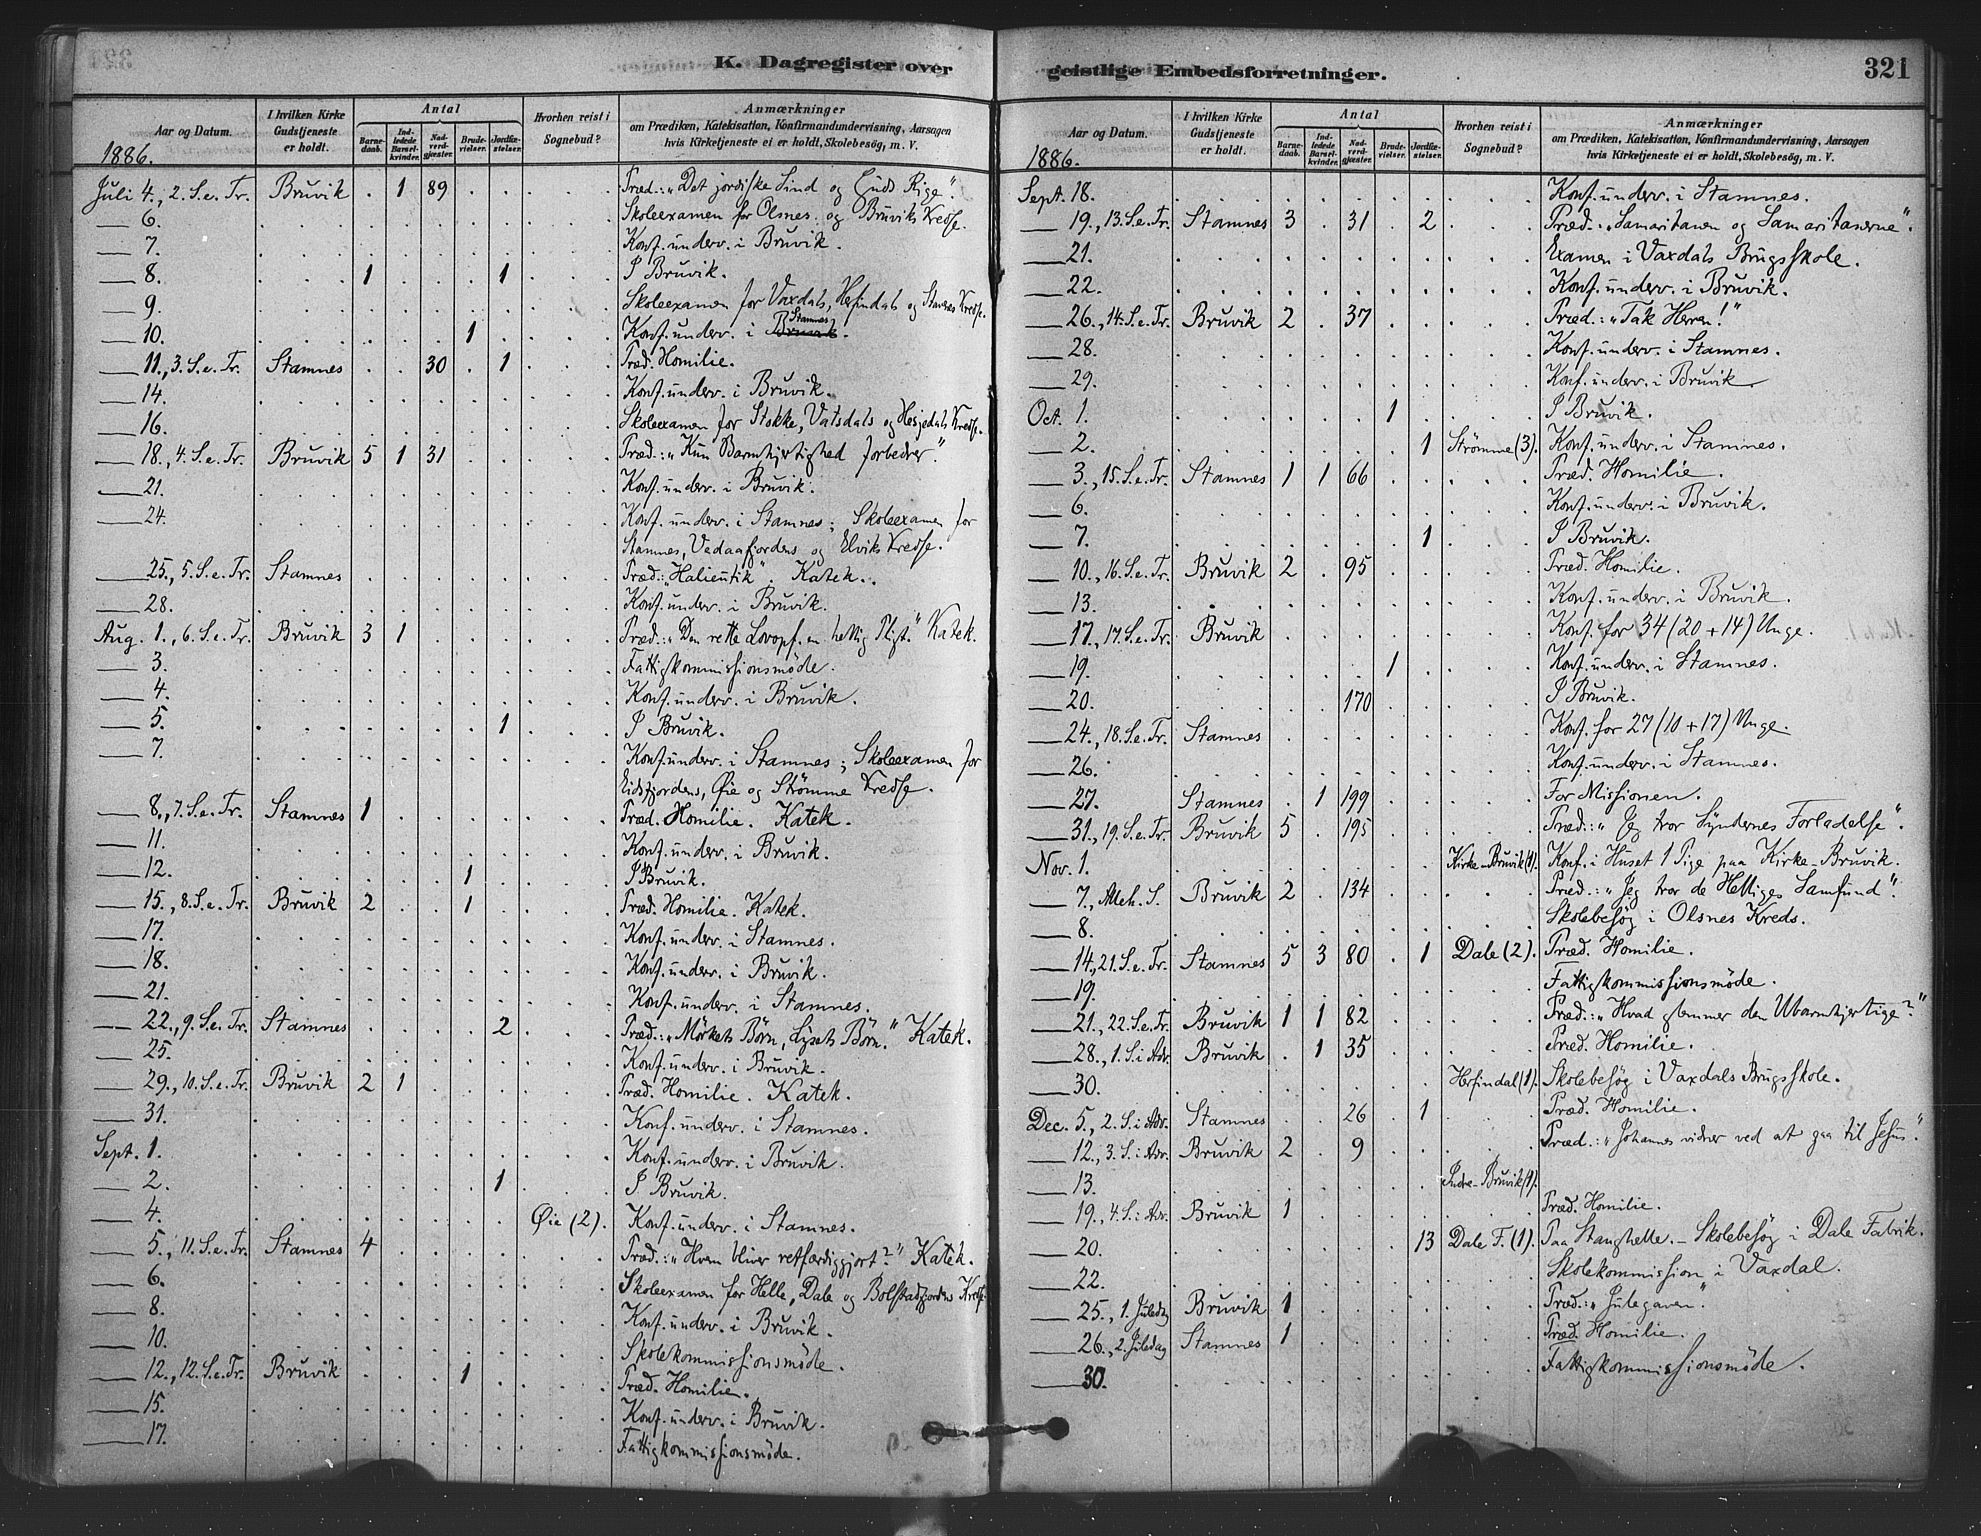 K. Dagregister over
Aar og Datum. I hvilken Kirke Gudstjeneste er holdt. Antal Barnedaab. Indledede Barselkvinder. Nadverdgjæster. Brudevielser. Jordfæstelser. Hvorhen reist i Sognebud? Anmærkninger om Prædiken, Katekisation, Konfirmandundervisning, Aarsagen hvis Kirketjeneste ei er holdt, Skolebesøg, m. V.
1886.
Juli 4., 2. S. e. Tr. Bruvik . 1 89 . . Præd.: "Det jordiske Sind og Guds Rige".
— 6. Skoleexamen for Olsnes og Bruviks Kredse.
— 7. Konf. underv. i Bruvik.
— 8. 1 . . . 1 I Bruvik.
— 9. Skoleexamen for Vaxdals, Herfindals og Stanes Kredse.
— 10. . . . 1 . Konf. underv. i Stamnes.
— 11., 3. S. e. Tr. Stamnes . . 30 . 1 Præd. Homilie.
— 14. Konf. underv. i Bruvik.
— 16. Skoleexamen for Stokke, Vatsdals og Hesjedals Kredse.
— 18., 4. S. e. Tr. Bruvik 5 1 31 . . Præd.: "Kun Barmhjertighed forbedrer".
— 21. Konf. underv. i Bruvik.
— 24. Konf. underv. i Stamnes; Skoleexamen for
Stamnes, Vedaafjordens og Elviks Kredse.
— 25., 5. S. e. Tr. Stamnes Præd.: "Halieutik". Katek.
— 28. Konf. underv. i Bruvik.
Aug. 1., 6. S. e. Tr. Bruvik 3 1 . . . Præd.: "Den rette Lovopf. en hellig Pligt." Katek.
— 3. Fattigkommissionsmøde.
— 4. Konf. underv. i Bruvik.
— 5. . . . . 1 I Bruvik.
— 7. Konf. underv. i Stamnes; Skoleexamen for
Eidsfjordens, Øie og Strömme Kredse.
— 8., 7. S. e. Tr. Stamnes 1 . . . . Præd. Homilie. Katek.
— 11. Konf. underv. i Bruvik.
— 12. . . . 1 . I Bruvik.
— 15., 8. S. e. Tr. Bruvik 2 . . 1 . Præd. Homilie. Katek.
— 17. Konf. underv. i Stamnes.
— 18. Konf. underv. i Bruvik.
— 21. Konf. underv. i Stamnes.
— 22., 9. S. e. Tr. Stamnes . . . . 2 Præd.: "Mörkets Börn, Lysets Börn." Katek.
— 25. Konf. underv. i Bruvik.
— 29., 10. S. e. Tr. Bruvik 2 1 . . . Præd. Homilie. Katek.
— 31. Konf. underv. i Stamnes.
Sept. 1. Konf. underv. i Bruvik.
— 2. . . . . 1 I Bruvik.
— 4. Øie (2). Konf. underv. i Stamnes.
— 5., 11. S. e. Tr. Stamnes 4 . . . . Præd.: "Hvem bliver retfærdiggjort?" Katek.
— 6. Skoleexamen for Helle, Dale og Bolstadfjordens Kredse.
— 8. Konf. underv. i Bruvik.
— 10. Skolekommissionsmöde.
— 12., 12. S. e. Tr. Bruvik . . . 1 . Præd. Homilie.
— 15. Konf. underv. i Bruvik.
— 17. Fattigkommissionsmöde.
geistlige Embedsforretninger. 321
Aar og Datum. I hvilken Kirke Gudstjeneste er holdt. Antal Barnedaab. Indledede Barselkvinder. Nadverdgjæster. Brudevielser. Jordfæstelser. Hvorhen reist i Sognebud? Anmærkninger om Prædiken, Katekisation, Konfirmandundervisning, Aarsagen hvis Kirketjeneste ei er holdt, Skolebesøg, m. V.
1886.
Sept. 18. Konf. underv. i Stamnes.
— 19., 13. S. e. Tr. Stamnes 3 . 31 . 2 Præd.: "Samaritanen og Samaritanerne".
— 21. Examen i Vaxdals Brugsskole.
— 22. Konf. underv. i Bruvik.
— 26., 14. S. e. Tr. Bruvik 2 . 37 . . Præd.: "Tak Herren!"
— 28. Konf. underv. i Stamnes.
— 29. Konf. underv. i Bruvik
Oct. 1. . . . 1 . I Bruvik.
— 2. . . . . 1 Strömme (3). Konf. underv. i Stamnes.
— 3., 15. S. e. Tr. Stamnes 1 1 66 . . Præd. Homilie.
— 6. Konf. underv. i Bruvik.
— 7. . . . . 1 I Bruvik.
— 10., 16. S. e. Tr. Bruvik 2 . 95 . . Præd. Homilie.
— 13. Konf. underv. i Bruvik.
— 17., 17. S. e. Tr. Bruvik Konf. for 34 (20 + 14) Unge.
— 19. . . . 1 . Konf. underv. i Stamnes.
— 20. . . 170 . . I Bruvik.
— 24., 18. S. e. Tr. Stamnes Konf. for 27 (10 + 17) Unge.
— 26. Konf. underv. i Stamnes.
— 27. Stamnes . 1 199 . . For Missionen.
— 31., 19. S. e. Tr. Bruvik 5 . 195 . . Præd.: "Jeg tror Syndernes Forladelse".
Nov. 1. Kirke-Bruvik (1). Konf. i Huset 1 Pige paa Kirke-Bruvik.
— 7., Alleh. S. Bruvik 2 . 134 . . Præd.: "Jeg tror de Helliges Samfund".
— 8. Skolebesög i Olsnes Kreds.
— 14., 21. S. e. Tr. Stamnes 5 3 80 . 1 Dale (2). Præd. Homilie.
— 19. Fattigkommissionsmöde.
— 21., 22. S. e. Tr. Bruvik 1 1 82 . . Præd.: "Hvad glemmer den Ubarmhjertige?"
— 28., 1. S. i Adv. Bruvik . 1 35 . . Præd. Homilie.
— 30. Herfindal (1). Skolebesög i Vaxdals Brugsskole.
Dec. 5., 2. S. i Adv. Stamnes . . 26 . 1 Præd. Homilie.
— 12., 3. S. i Adv. Bruvik 2 . 9 . . Præd.: "Johannes vidner ved at gaa til Jesus".
— 13. Indre-Bruvik (1).
— 19., 4. S. i Adv. Bruvik 1 . . . . Præd. Homilie.
— 20. . . . . 13 Dale F. (1). Paa Stanghelle. – Skolebesög i Dale Fabrik.
— 22. Skolekommission i Vaxdal.
— 25., 1. Juledag Bruvik 1 . . . . Præd.: "Julegaven".
— 26., 2. Juledag Stamnes 1 . . . . Præd. Homilie.
— 30. Fattigkommissionsmöde.